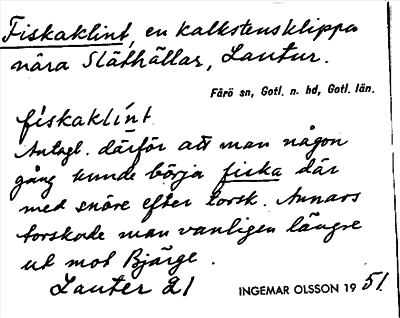 Fiskaklint, en kalkstensklippa
nära Släthällar, Lautur.
Fårö sn, Gotl. n. hd, Gotl. län.
fiskaklínt
Antagl. därför att man någon
gång kunde börja fiska där
med snöre efter torsk. Annars
torskade man vanligen längre
ut mot Bjärge.
Lauter 21
INGEMAR OLSSON 1951.